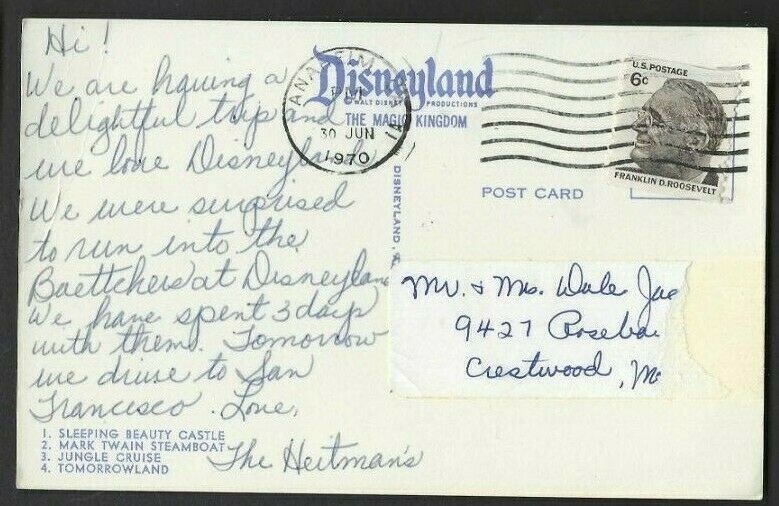 Hi!
We are having a
delightful trip and
we love Disneyland.
We were surprised
to run into the
Baettchers at Disneyland
We have spent 3 days
with them. Tomorrow
we drive to San
Francisco. Love,
The Heitman's
1. SLEEPING BEAUTY CASTLE
2. MARK TWAIN STEAMBOAT
3. JUNGLE CRUISE
4. TOMORROWLAND
Disneyland
© WALT DISNEY PRODUCTIONS
THE MAGIC KINGDOM
ANAHEIM
PM
30 JUN
1970
1A
DISNEYLAND,
U.S. POSTAGE
6c
FRANKLIN D. ROOSEVELT
POST CARD
Mr. & Mrs. Dale Jac
9427 Roseba
Crestwood, Mo